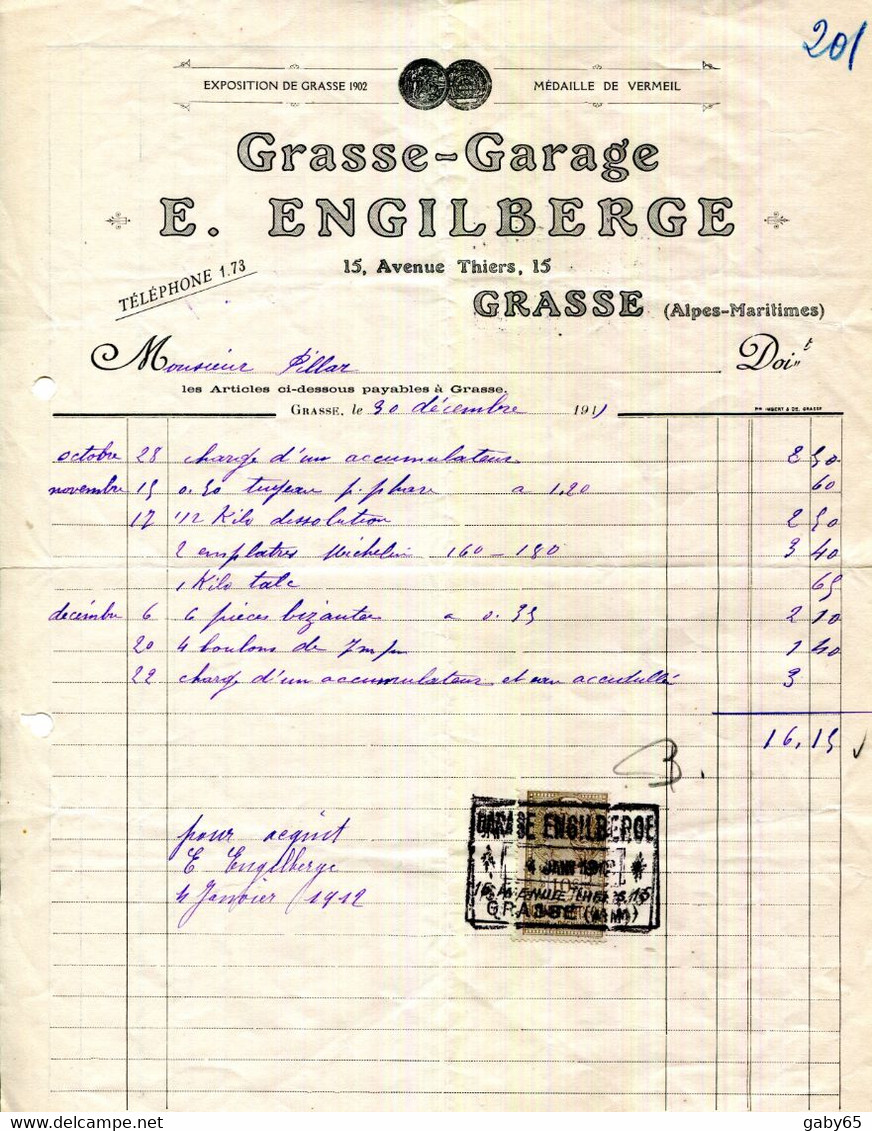 201
EXPOSITION DE GRASSE 1902 MÉDAILLE DE VERMEIL
Grasse-Garage
E. ENGILBERGE
15, Avenue Thiers, 15
TÉLÉPHONE 1.73
GRASSE (Alpes-Maritimes)
Monsieur Pillar Doit
les Articles ci-dessous payables à Grasse.
GRASSE, le 30 décembre 1911
octobre 28 charge d'un accumulateur 2 50
novembre 15 0.50 tuyeau p. phare a 1,20 60
17 1/2 Kilo dissolution 2 50
2 emplatres Michelin 160 - 180 3 40
1 Kilo talc 65
decémbre 6 6 pièces a 0.35 2 10
20 4 boulons de 7 m/m 1 40
22 charge d'un accumulateur et eau 3
16,15
pour acquit
E Engilberge
4 Janvier 1912
GARAGE ENGILBERGE
4 JANV 1912
15 AVENUE THIERS 15
GRASSE (A.M.)
delcampe.net
gaby65